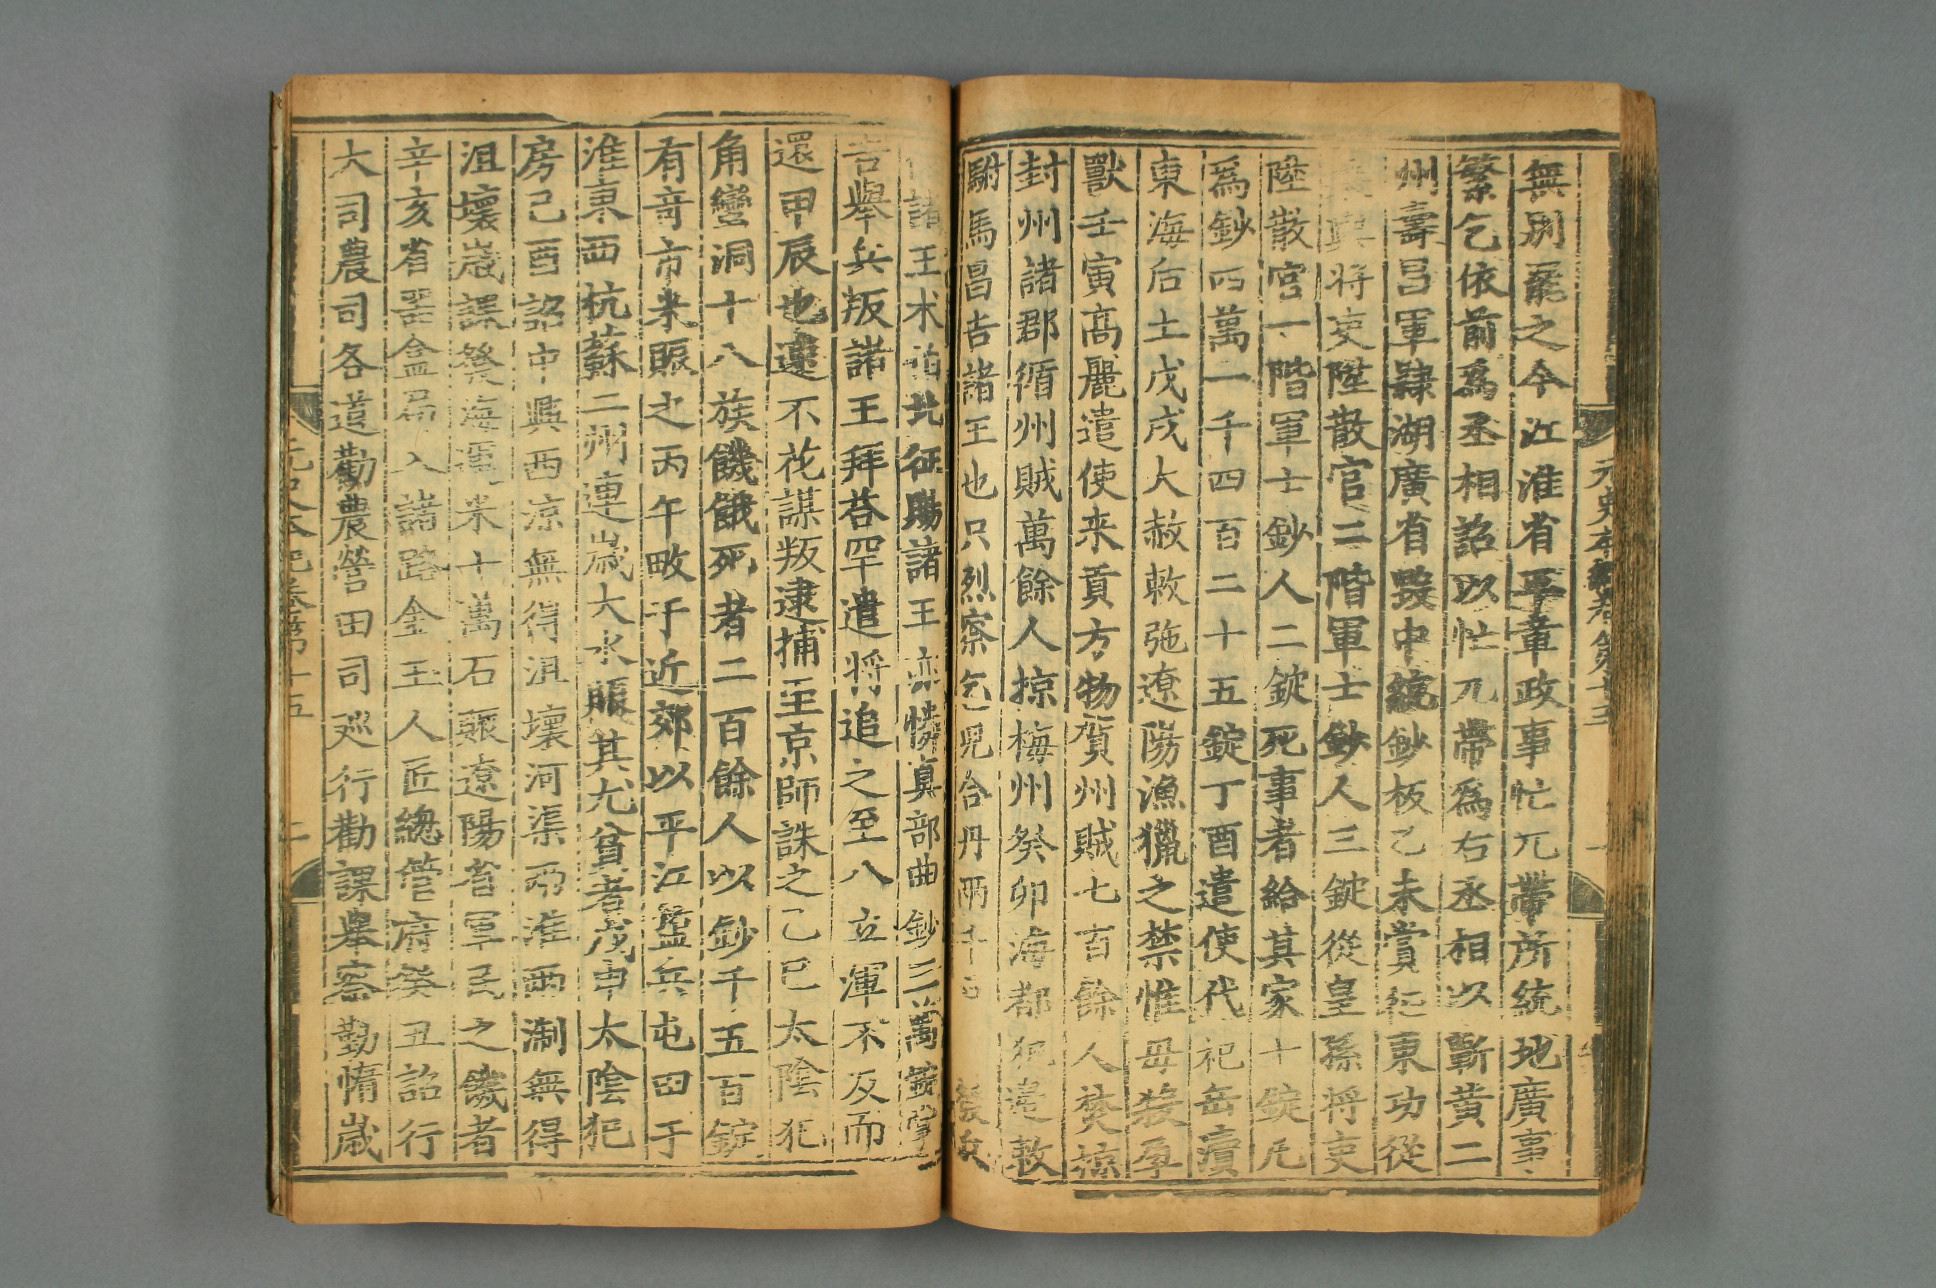 元史本紀卷第十五
一
無別罷之今江淮有平章政事忙兀帶所統地廣事
繁乞依前爲丞相詔以忙兀帶爲右丞相以蘄黃二
州壽昌軍隸湖廣省毀中統鈔板乙未賞征東功從
將吏陞散官二階軍士鈔人三錠從皇孫將吏
陞散官一階軍士鈔人二錠死事者給其家十錠凡
爲鈔四萬一千四百二十五錠丁酉遣使代祀岳瀆
東海后土戊戌大赦敕弛遼陽漁獵之禁惟毋殺孕
獸壬寅高麗遣使来貢方物賀州賊七百餘人焚掠
封州諸郡循州賊萬餘人掠梅州癸卯海都犯邊敕
駙馬昌吉諸王也只烈察乞兒合丹兩千户
諸王术伯北征賜諸王亦憐真部曲鈔三萬錠掌
吉舉兵叛諸王拜荅罕遣將追之至八立渾不及而
還甲辰也速不花謀叛逮捕至京師誅之乙巳太陰犯
角蠻洞十八族饑餓死者二百餘人以鈔千五百錠
有奇市米賑之丙午畋于近郊以平江盐兵屯田于
淮東西杭蘇二州連歲大水賑其尤貧者戊申太陰犯
房己酉詔中興西涼無得沮壞河渠两淮两淛無得
沮壞嵗課發海運米十萬石賑遼陽省軍民之饑者
辛亥省器盒局入諸路金玉人匠緫管府癸丑詔行
大司農司各道勸農營田司廵行勸課舉察勤惰嵗
元史本紀卷第十五
二